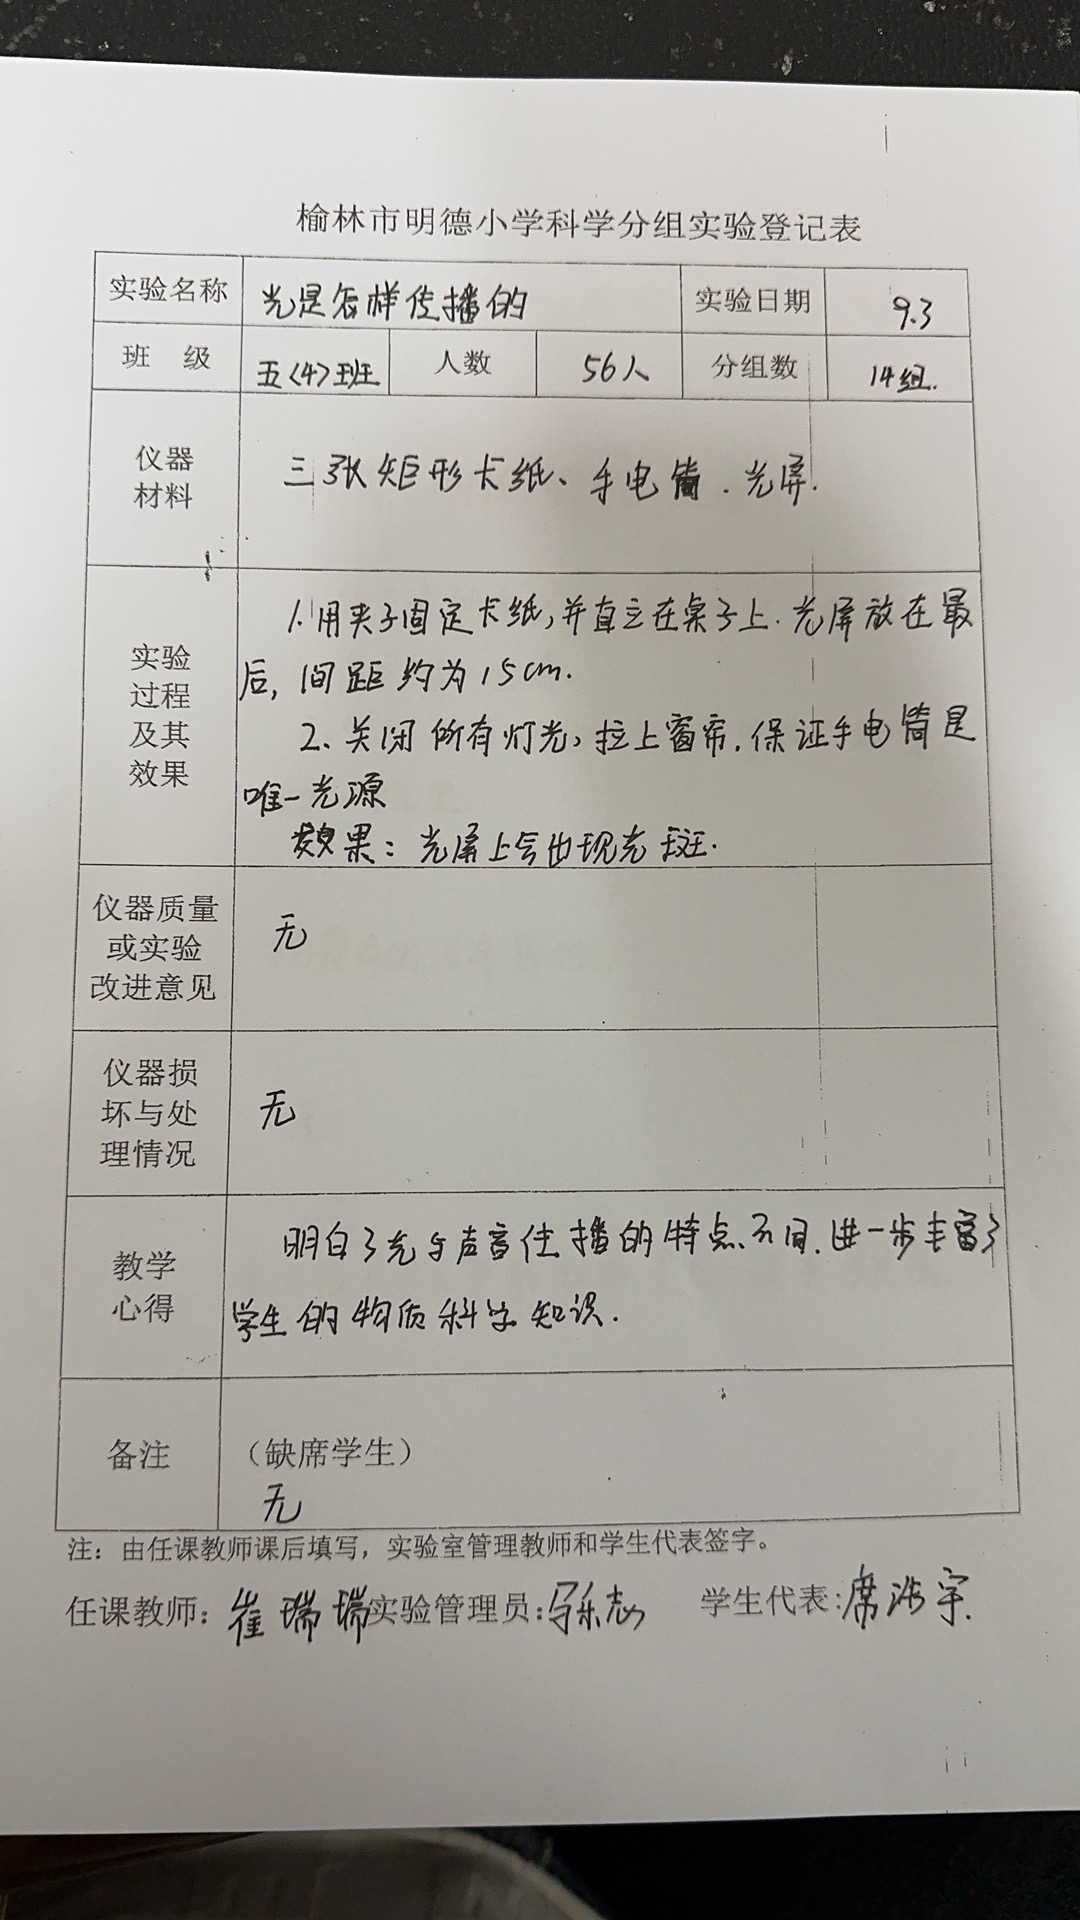 榆林市明德小学科学分组实验登记表
实验名称 光是怎样传播的 实验日期 9.3
班 级 五〈4〉班 人数 56人 分组数 14组.
仪器
材料
三张矩形卡纸、手电筒.光屏.
实验
过程
及其
效果
1.用夹子固定卡纸,并直立在桌子上.光屏放在最
后,间距约为15cm.
2、关闭所有灯光,拉上窗帘.保证手电筒是
唯一光源
效果:光屏上会出现光斑.
仪器质量
或实验
改进意见
无
仪器损
坏与处
理情况
无
教学
心得
明白了光与声音传播的特点不同.进一步丰富了
学生的物质科学知识.
备注
(缺席学生)
无
注:由任课教师课后填写,实验室管理教师和学生代表签字。
任课教师:崔瑞瑞 实验管理员: 学生代表:席 宇